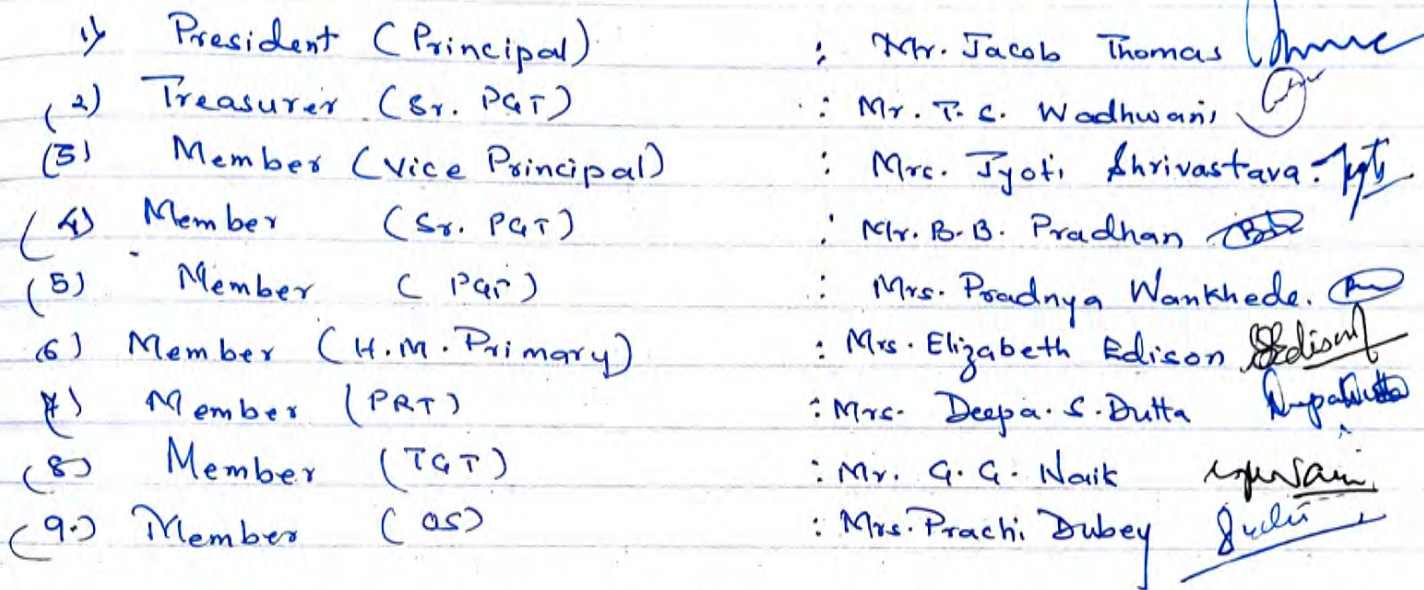 1) President (Principal) : Mr. Jacob Thomas
(2) Treasurer (Sr. PGT) : Mr. T. S. Wadhwani
(3) Member (Vice Principal) : Mrs. Jyoti Shrivastava. Jyoti
(4) Member (Sr. PGT) : Mr. B.B. Pradhan
(5) Member (PGT) : Mrs. Pradnya Wankhede.
(6) Member (H.M. Primary) : Mrs. Elizabeth Edison Edison
(7) Member (PRT) : Mrs. Deepa. S. Dutta
(8) Member (TGT) : Mr. G. G. Naik
(9.) Member (OS) : Mrs. Prachi Dubey